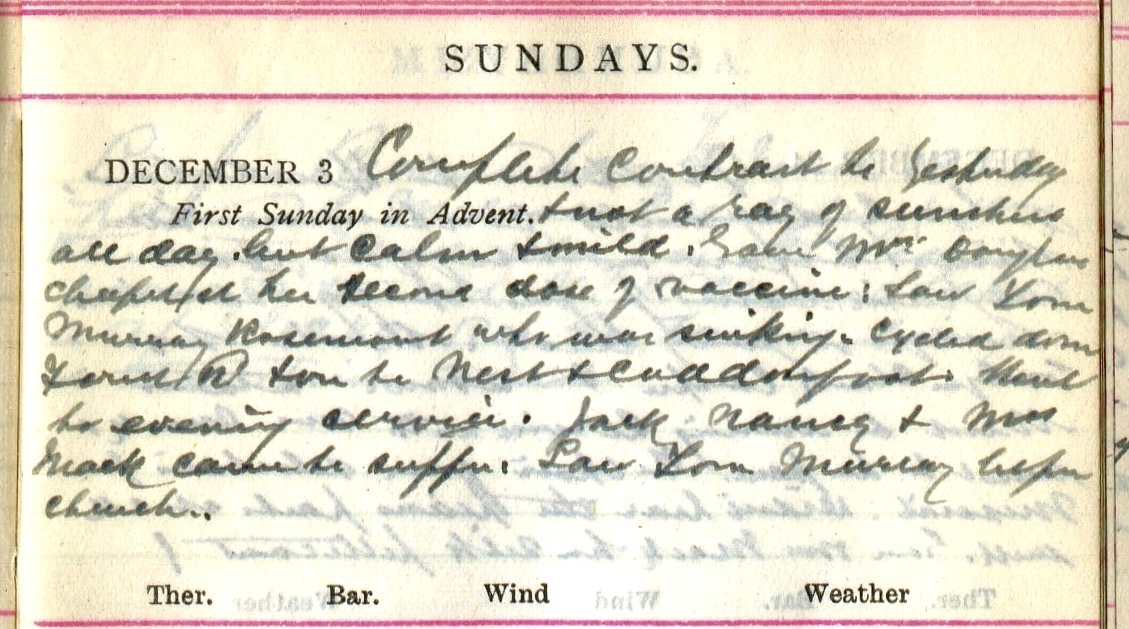 SUNDAYS.
DECEMBER 3 Complete contrast to yesterday
First Sunday in Advent. & not a ray of sunshine
all day, but calm & mild. Gave Mrs Douglas
her second dose of vaccine; saw Tom
Murray Rosemount who was sinking. Cycled down
Forest Rd & on to Nest & Cuddenfoot. Went
to evening service. Jack Nancy & Mrs
Mack came to supper. Saw Tom Murray before
church..
Ther. Bar. Wind Weather